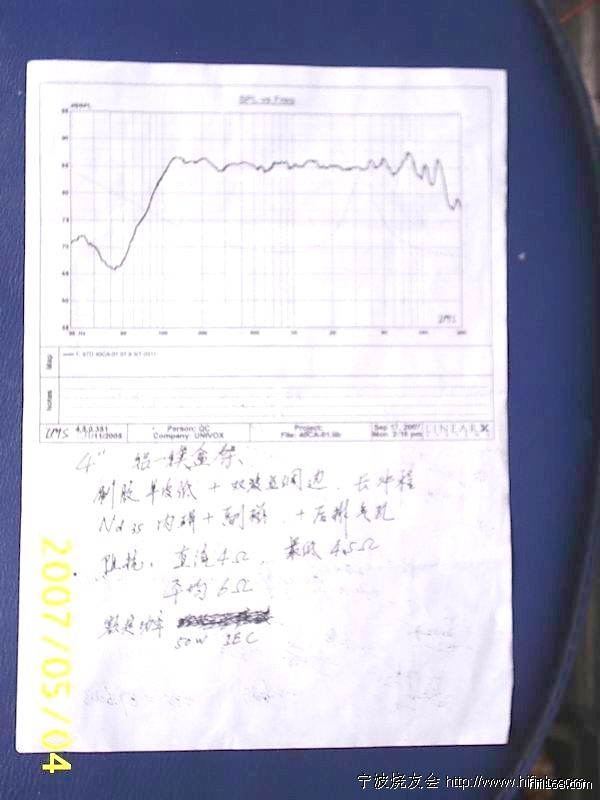 SPL vs Freq
dBSPL
95
85
75
65
55
20 Hz 50 100 200 500 1K 2K 5K 10K 20K
LMS
Map
Notes
LMS
Person: QC
Company: UNIVOX
Project:
File: 40CA-01.lib
Sep 17, 2007
Mon 2:16 pm
LINEAR X
4" 铝-镁盆架
刷胶单皮纸 + 双波 边 长冲程
Nd 35 内磁 + 副磁 + 后排气孔
阻抗: 直流 4Ω 最低 4.5Ω
平均 6Ω
额定功率
50W IEC
2007/05/04
宁波烧友会 http://www.hifi